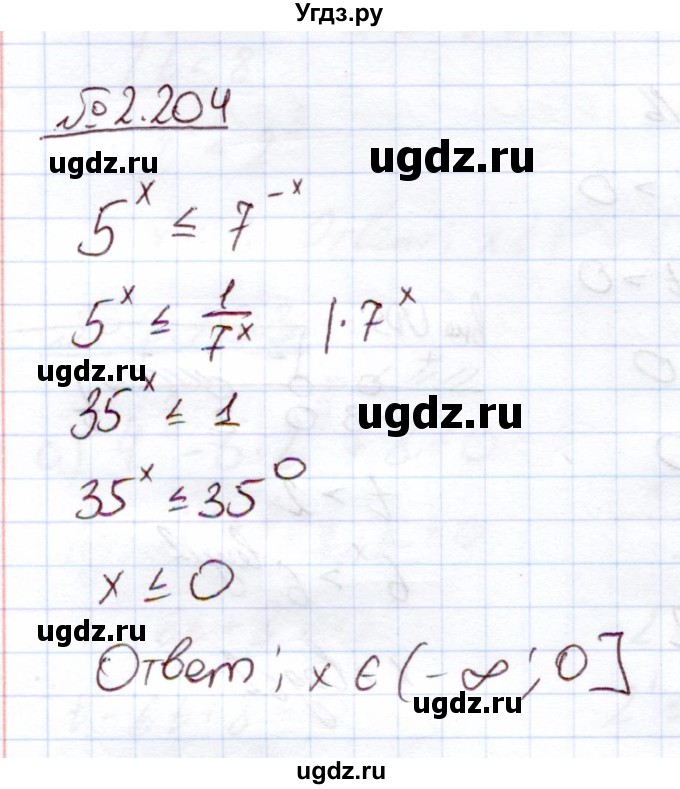 Угдз.ру
№2.204
ugdz.ru ugdz.ru
5^x ≤ 7^-x
5^x ≤ 1/7^x |·7^x
ugdz.ru
35^x ≤ 1 ugdz.ru
35^x ≤ 35^0
x ≤ 0
ugdz.ru
Ответ: x ∈ (-∞; 0]
ugdz.ru
ugdz.ru